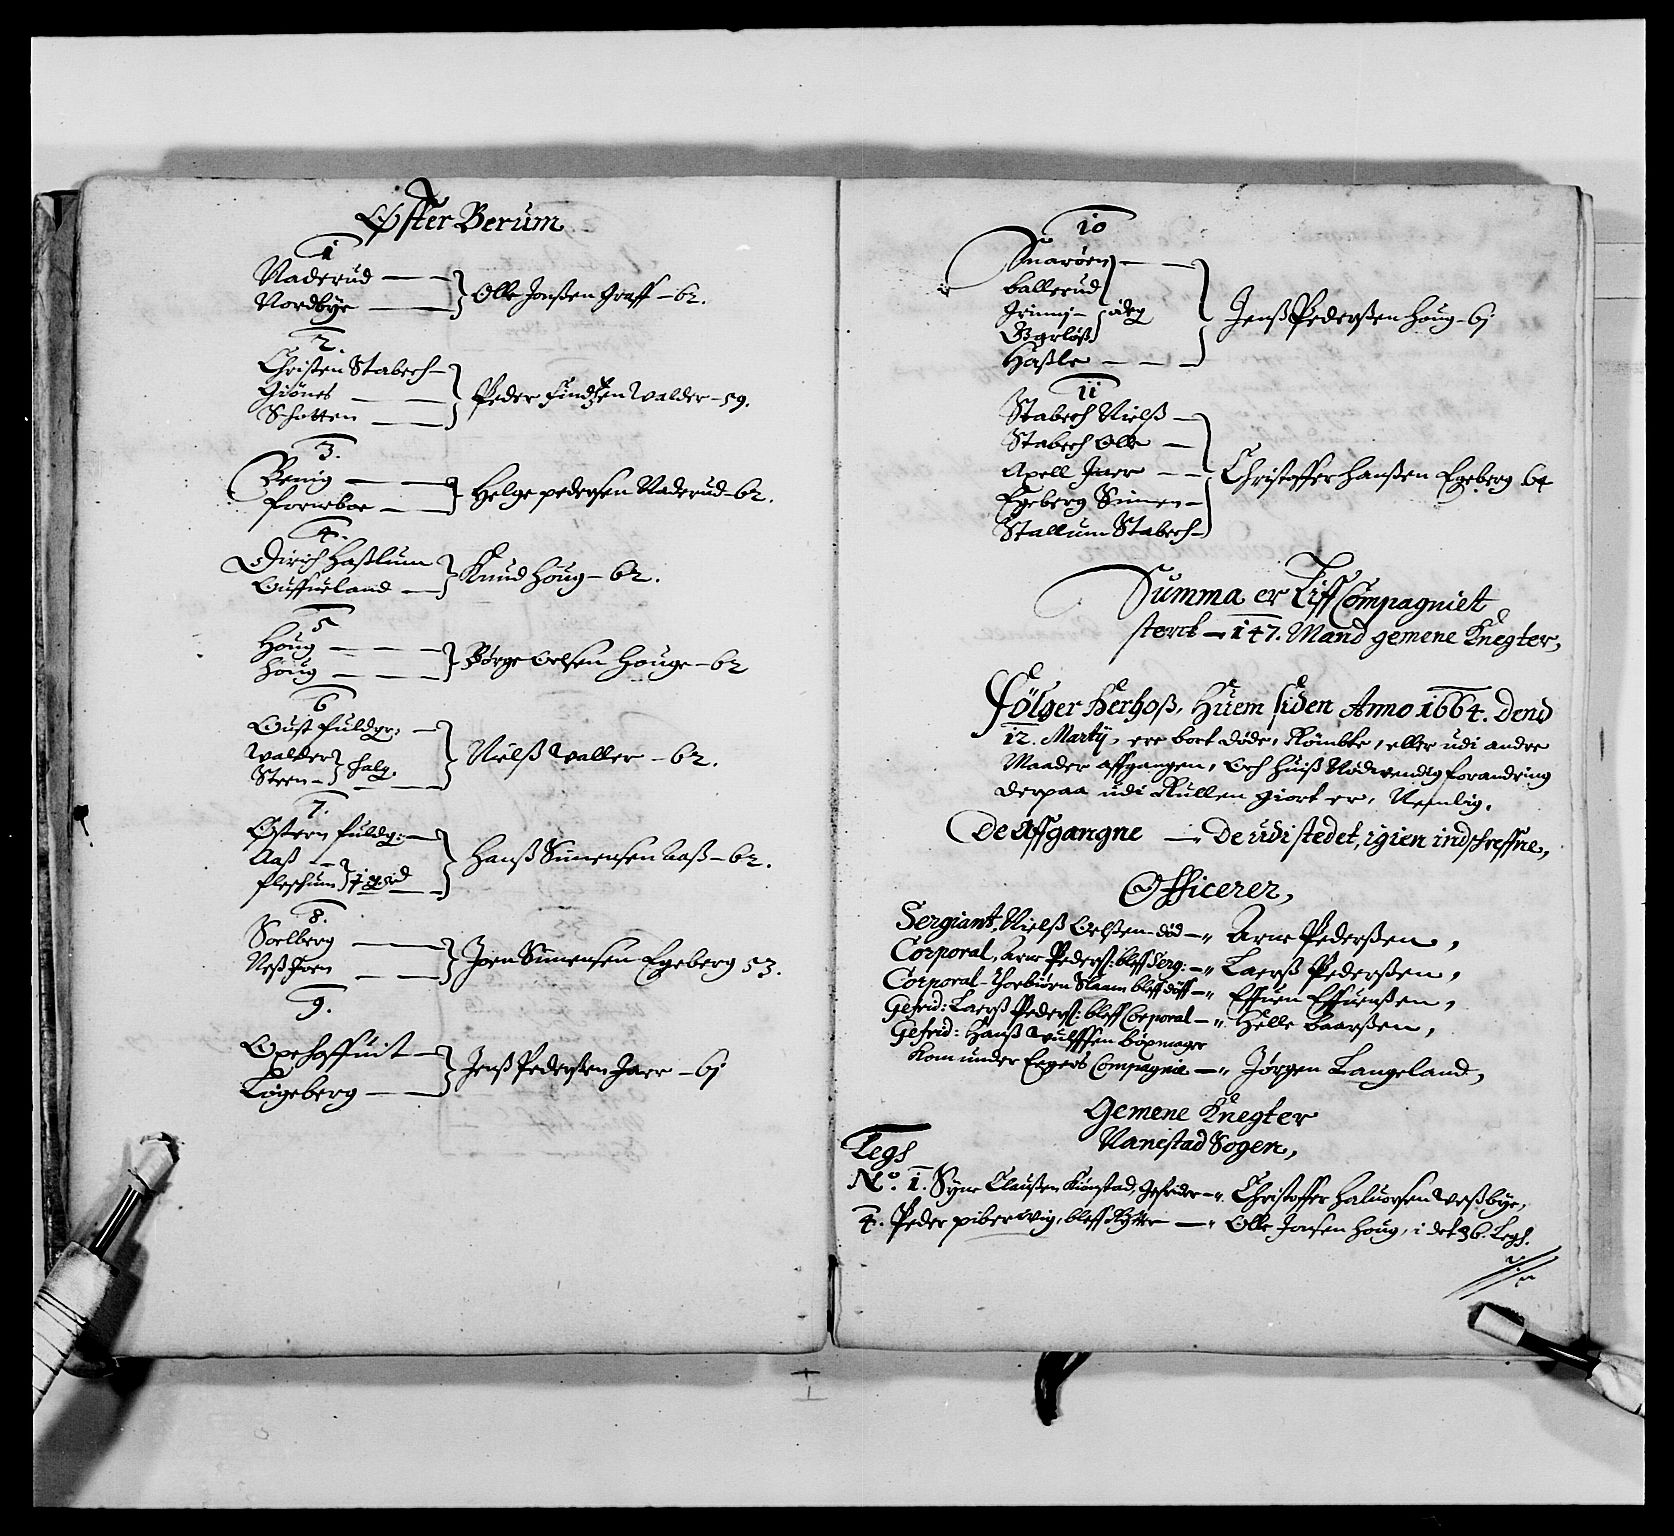 Øster Berum
1
Naderud
Nordbye } Olle Jonßen Graff - 62.
2
Christen Stabech
Giønes
Schotten } Peder Findßen Walder - 59.
3.
Renig
forneboe } Helge pedersen Naderud - 62.
4.
Dirich Haßlum
Guffueland } Knud Houg - 62.
5
Houg
Houg } Børge Oelsen Houge - 62
6
Gust fuldgr:
Walder
Steen } halg. } Nielß Waller - 62.
7.
Østern fuldg:
Aaß
fleschum } Hanß Simensen Aaß - 62.
8.
Soelberg
Neß Joen } Joen Simensen Egeberg 53.
9.
Opehaffuit
Løgeberg } Jenß Pederßen Jaer - 61
10
Snarøen
ballerud
Grimj
Ogrløß } ødeg
Haßle } Jenß Pederßen Houg - 61
11
Stabech Nielß
Stabech Olle
Apell Jaer
Egeberg Simen
Stallum Stabech } Christoffer Hanßen Egeberg 64
Summa er Liff Compagniet
sterck - 147. Mand gemene Knegter,
Fölger Herhoß, Huem siden Anno 1664. Dend
12. Martij, ere bort døde, Römbte, eller udi andre
Maader affgangen, Och huiß Nødwendig forandring
derpaa udi Rullen giort er, Nemlig.
De Affgangne - De udi stedet igien indschreffne,
Officerer,
Sergiant, Nielß Oelßen død - " Arne Pederßen,
Corporal, Arne Pederß: bleff Serg: - " Laerß Pederßen,
Corporal - Thorbiørn Slaam bleff døff - " Effuen Effuenßen,
Gefrid: Laerß Pederß: bleff Corporal - " Helle Baarßen,
Gefrid: Hanß Wulffsen boxmager
Kom under Eegers Compagnie - " Jørgen Langeland,
Gemene Knegter
Nanestad Sogen,
Legs
No. 1. Syne Claußen Kiønstad, Gefrider - " Christoffer Haluorsen Weßbye,
4. Peder piberwig, bleff Rytter - " Olle Jonsen Houg, i det 36. Legs.